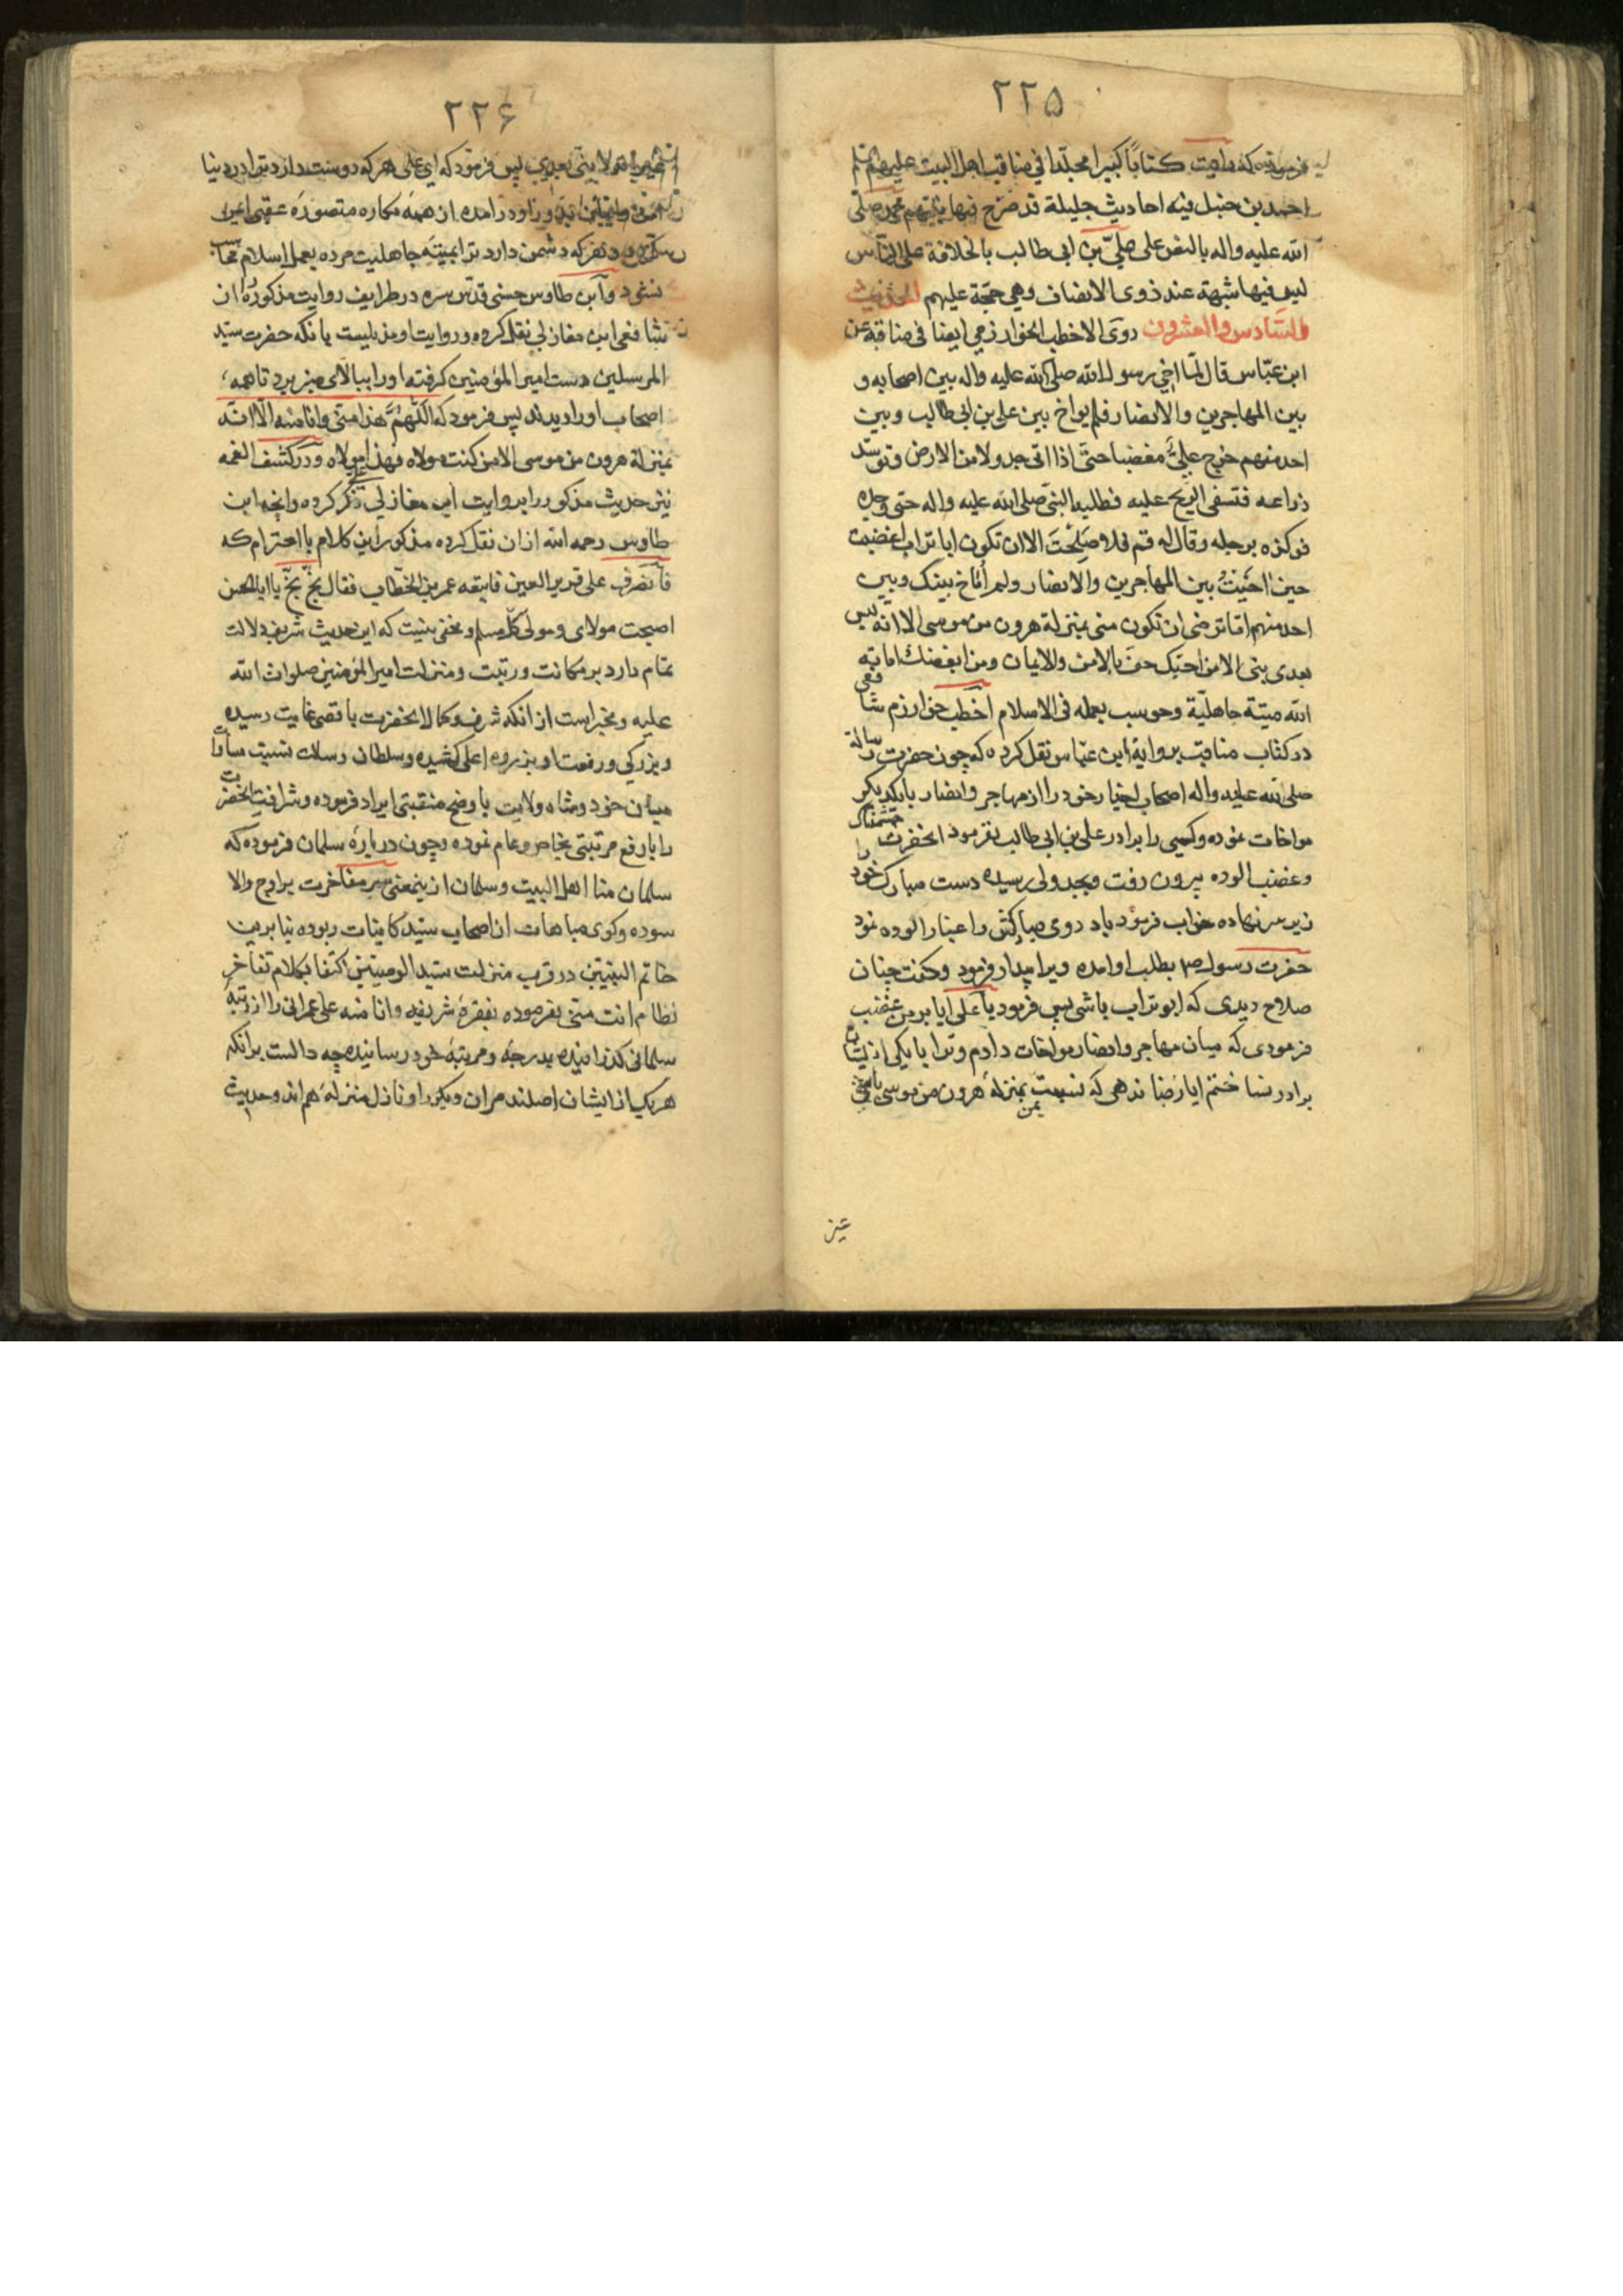 ۲۲۵
کتابا کبیرا مجلدا فی مناقب اهل البیت علیهم
احمد بن حنبل فیه احادیث جلیلة قد صرح فیها نبیهم محمد صلی
الله علیه واله بالنص علی علی بن ابی طالب بالخلافة علی الناس
لیس فیها شبهة عند ذوی الانصاف وهی حجة علیهم الحدیث
السادس والعشرون روی الاخطب الخوارزمی ایضا فی مناقبه عن
ابن عبّاس قال لمّا اخی رسول الله صلی الله علیه واله بین اصحابه و
بین المهاجرین والانصار فلم یواخ بین علی بن ابی طالب وبین
احد منهم خرج علیّ مغضبا حتی اذا اتی جدولا من الارض وتوسّد
ذراعه فتسفی الریح علیه فطلبه النبی صلی الله علیه واله حتی وجده
فوکزه برجله وقال له قم فما صلحت الا ان تکون ابا تراب اغضبت
حین اخیت بین المهاجرین والانصار ولم اُواخ بینک وبین
احد منهم اما ترضی ان تکون منی بمنزلة هرون من موسی الا انه لیس
بعدی نبی الا من احبک حف بالامن والایمان ومن ابغضک اماته
الله میتة جاهلیة وحوسب بعمله فی الاسلام اخطب خوارزم شافعی
در کتاب مناقب بروایة ابن عبّاس نقل کرده که چون حضرت رسالة
صلی الله علیه واله اصحاب اخیار خود را از مهاجر وانصار بایکدیکر
مواخات نموده وکسی را برادر علی بن ابی طالب نفرمود انحضرت خشمناک
وغضب الوده بیرون رفت وبجدولی رسیده دست مبارک خود را
زیر سر نهاده خواب فرمود باد روی مبارکش را غبار الوده نمود
حضرت رسول ص بطلب او امده ویرا بیدار فرمود وکفت چنان
صلاح دیدی که ابو تراب باشی پس فرمود یا علی ایا بر من غضب
فرمودی که میان مهاجر وانصار مواخات دادم وترا با یکی از ایشان
برادر نساختم ایا رضا ندهی که نسبت بمن بمنزله هرون من موسی باشی
غیر
۲۲۶
لا نبی بعدی پس فرمود که ای علی هر که دوست دارد ترا در دنیا
امده از همه مکاره متصوره عقبی
وهر که دشمن دارد ترا بمیته جاهلیت مرده بعمل اسلام محاسب
نشود وابن طاوس حسنی قدس سره در طرایف روایت مذکوره از
شافعی ابن مغازلی نقل کرده وروایت او مذیلیست بانکه حضرت سید
المرسلین دست امیر المؤمنین کرفته او را ببالای منبر برد تا همه
اصحاب او را دیدند پس فرمود که اللهم هذا منی وانا منه الا انه
بمنزلة هرون من موسی الا من کنت مولاه فهذا علی مولاه ودر کشف الغمه
نیز حدیث مذکور را بروایت ابن مغازلی ذکر کرده وانچه ابن
طاوس رحمه الله از ان نقل کرده مذکور این کلام با احترام که
فانصرف علی قریر العین فاتبعه عمر بن الخطاب فقال بخّ بخّ یا ابا الحسن
اصبحت مولای ومولی کل مسلم ومخفی نیست که این حدیث شریف دلالت
تمام دارد بر مکانت ورتبت ومنزلت امیر المؤمنین صلوات الله
علیه ومخبر است از انکه شرف وکمال انحضرت باقصی غایت رسیده
وبزرکی ورفعت او بذروه اعلی کشیده وسلطان رسالت نسبت مساوات
میان خود وشاه ولایت باوضح منقبتی ایراد فرموده وشرافت انحضرت
را بارفع مرتبتی بخاص وعام نموده وچون درباره سلمان فرموده که
سلمان منا اهل البیت وسلمان از ینمعنی سر مفاخرت براوج والا
سوده وکوی مباهات از اصحاب سید کاینات ربوده بنابرین
خاتم النبیین در قرب منزلت سید الوصیین اکتفا بکلام تفاخر
نظام انت منی نفرموده بفقره شریفه وانا منه علی عمرانی را از رتبه
سلمانی کذرانیده بدرجه ومرتبه خود رسانیده چه دالست برانکه
هریک از ایشان اصلند مران دیکر را ونازل منزله هم اند وحدیث